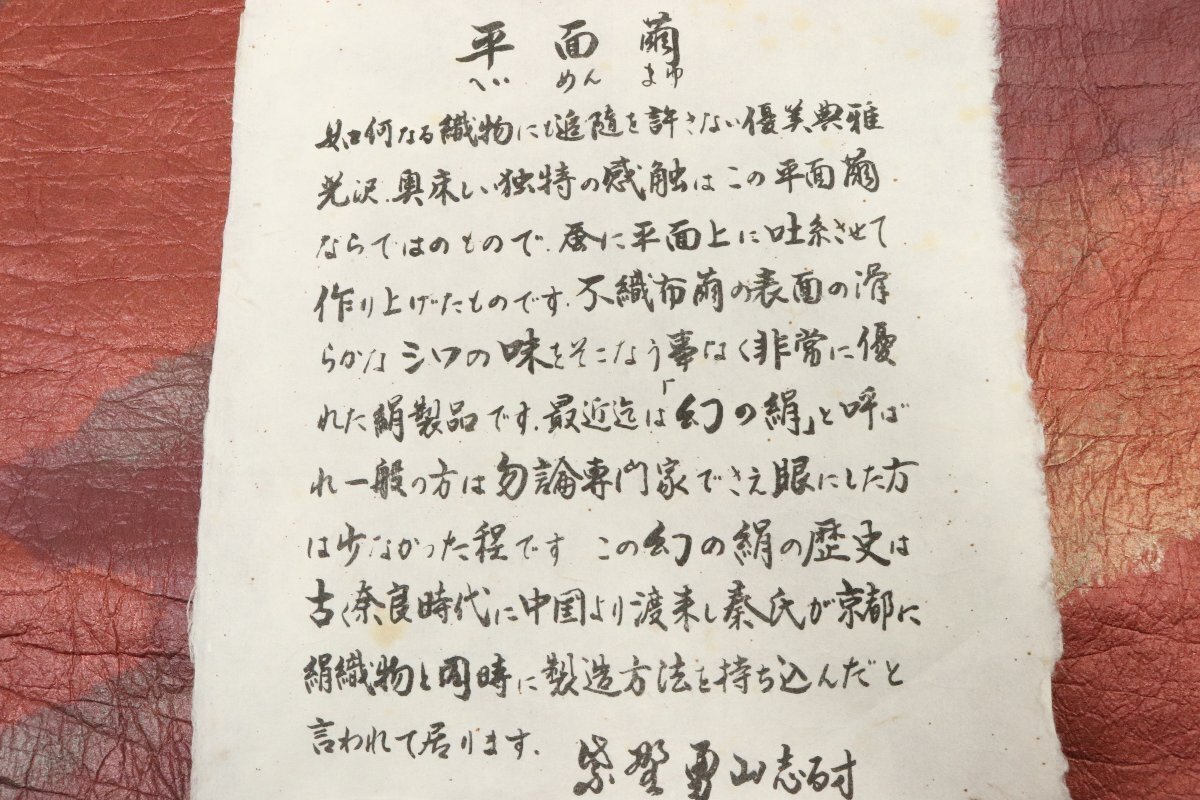 平面繭
へいめんまゆ
如何なる織物にも追随を許さない優美典雅
光沢、奥床しい独特の感触はこの平面繭
ならではのもので、蚕に平面上に吐糸させて
作り上げたものです、不織布繭の表面の滑
らかなシワの味をそこなう事なく非常に優
れた絹製品です、最近迄は「幻の絹」と呼ば
れ一般の方は勿論専門家でさえ眼にした方
は少なかった程です この幻の絹の歴史は
古く奈良時代に中国より渡来し秦氏が京都に
絹織物と同時に製造方法を持ち込んだと
言われて居ります、
紫野 勇山